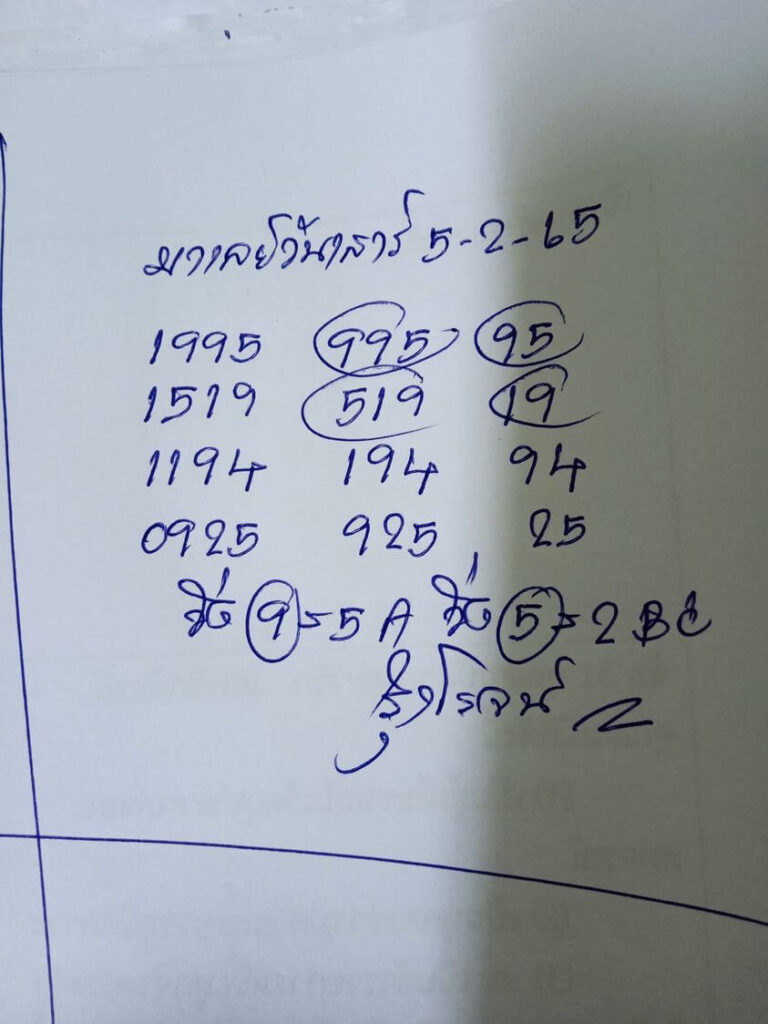 มาเลย์วันเสาร์ 5-2-65
1995 995 95
1519 519 19
1194 194 94
0925 925 25
วิ่ง 9=5 A วิ่ง 5=2 BC
รุ่งโรจน์